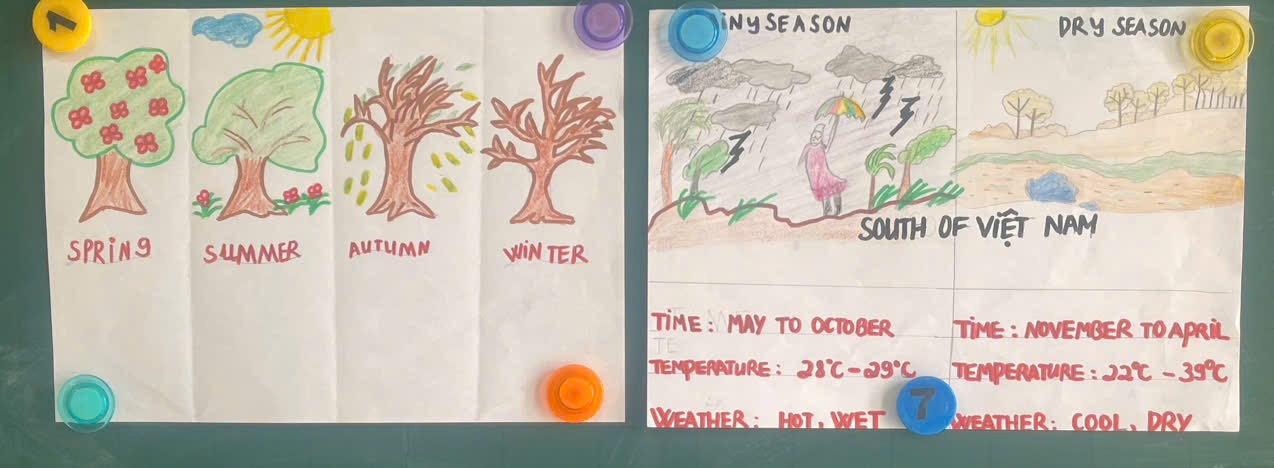 1
SPRING
SUMMER
AUTUMN
WINTER
INY SEASON
DRY SEASON
SOUTH OF VIỆT NAM
TIME: MAY TO OCTOBER
TEMPERATURE: 28°C - 29°C
WEATHER: HOT, WET
TIME: NOVEMBER TO APRIL
TEMPERATURE: 22°C - 39°C
WEATHER: COOL, DRY
7